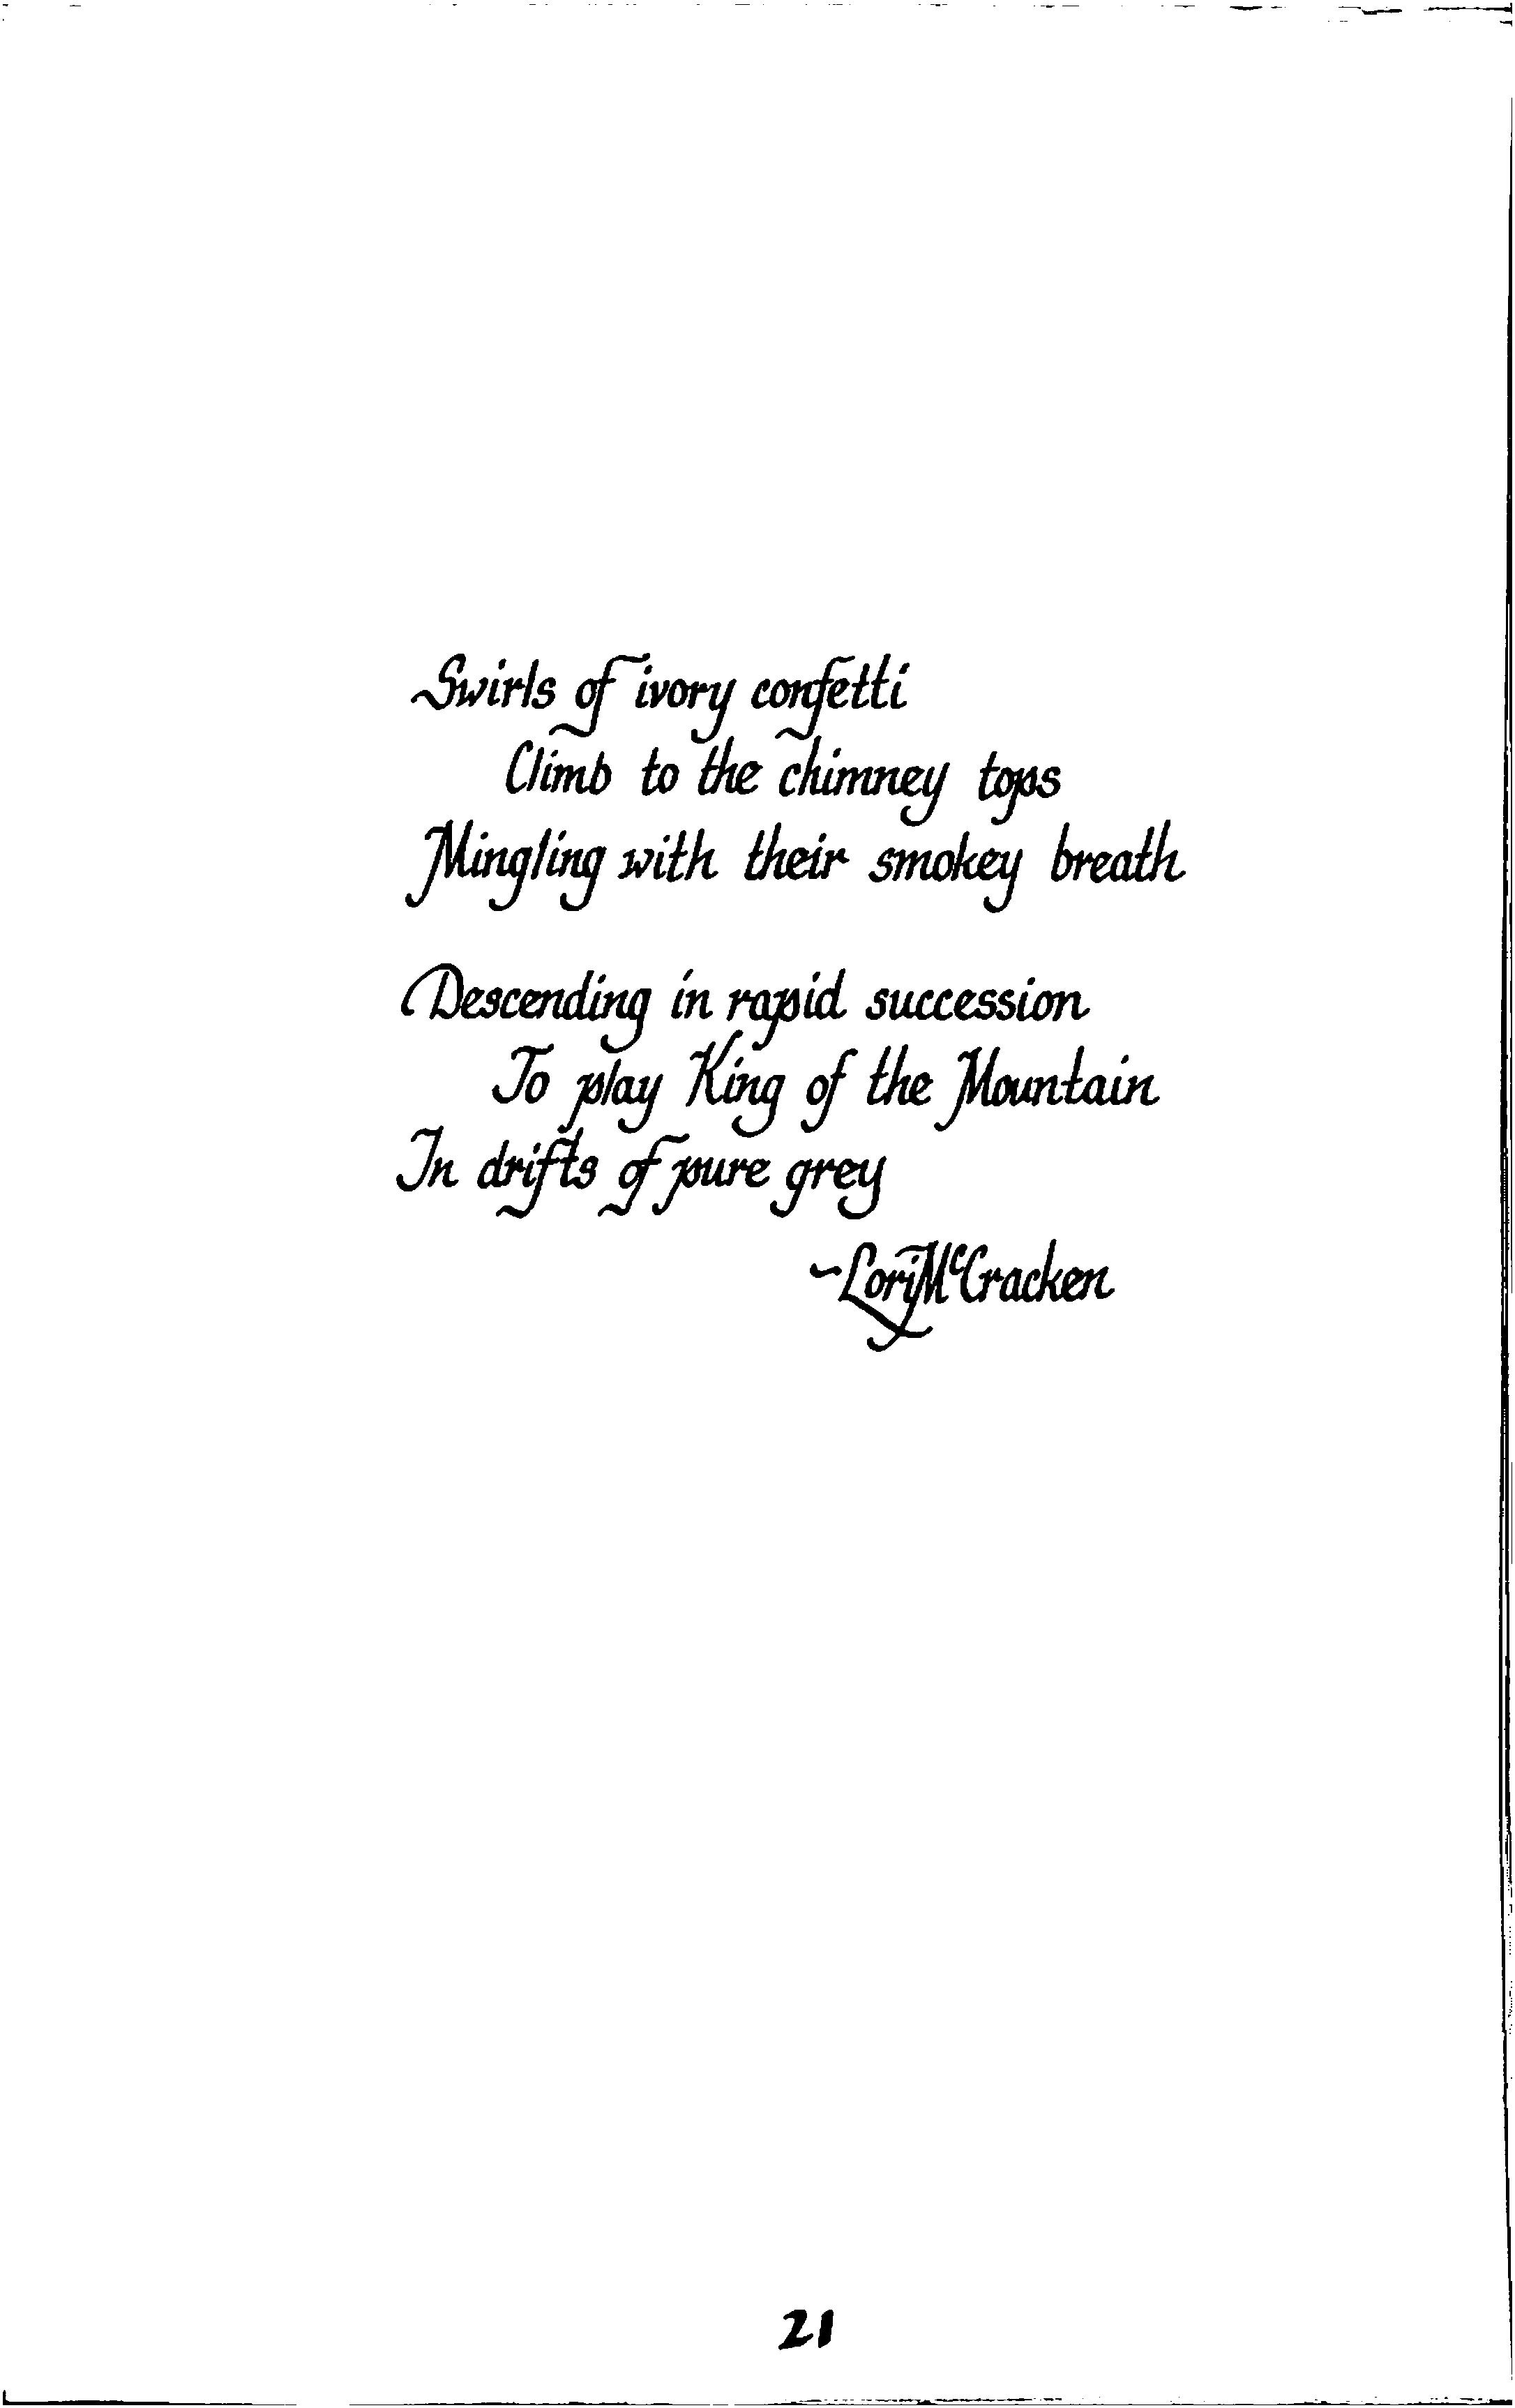 Swirls of ivory confetti
Climb to the chimney tops
Mingling with their smokey breath
Descending in rapid succession
To play King of the Mountain
In drifts of pure grey
~Lori McCracken
21